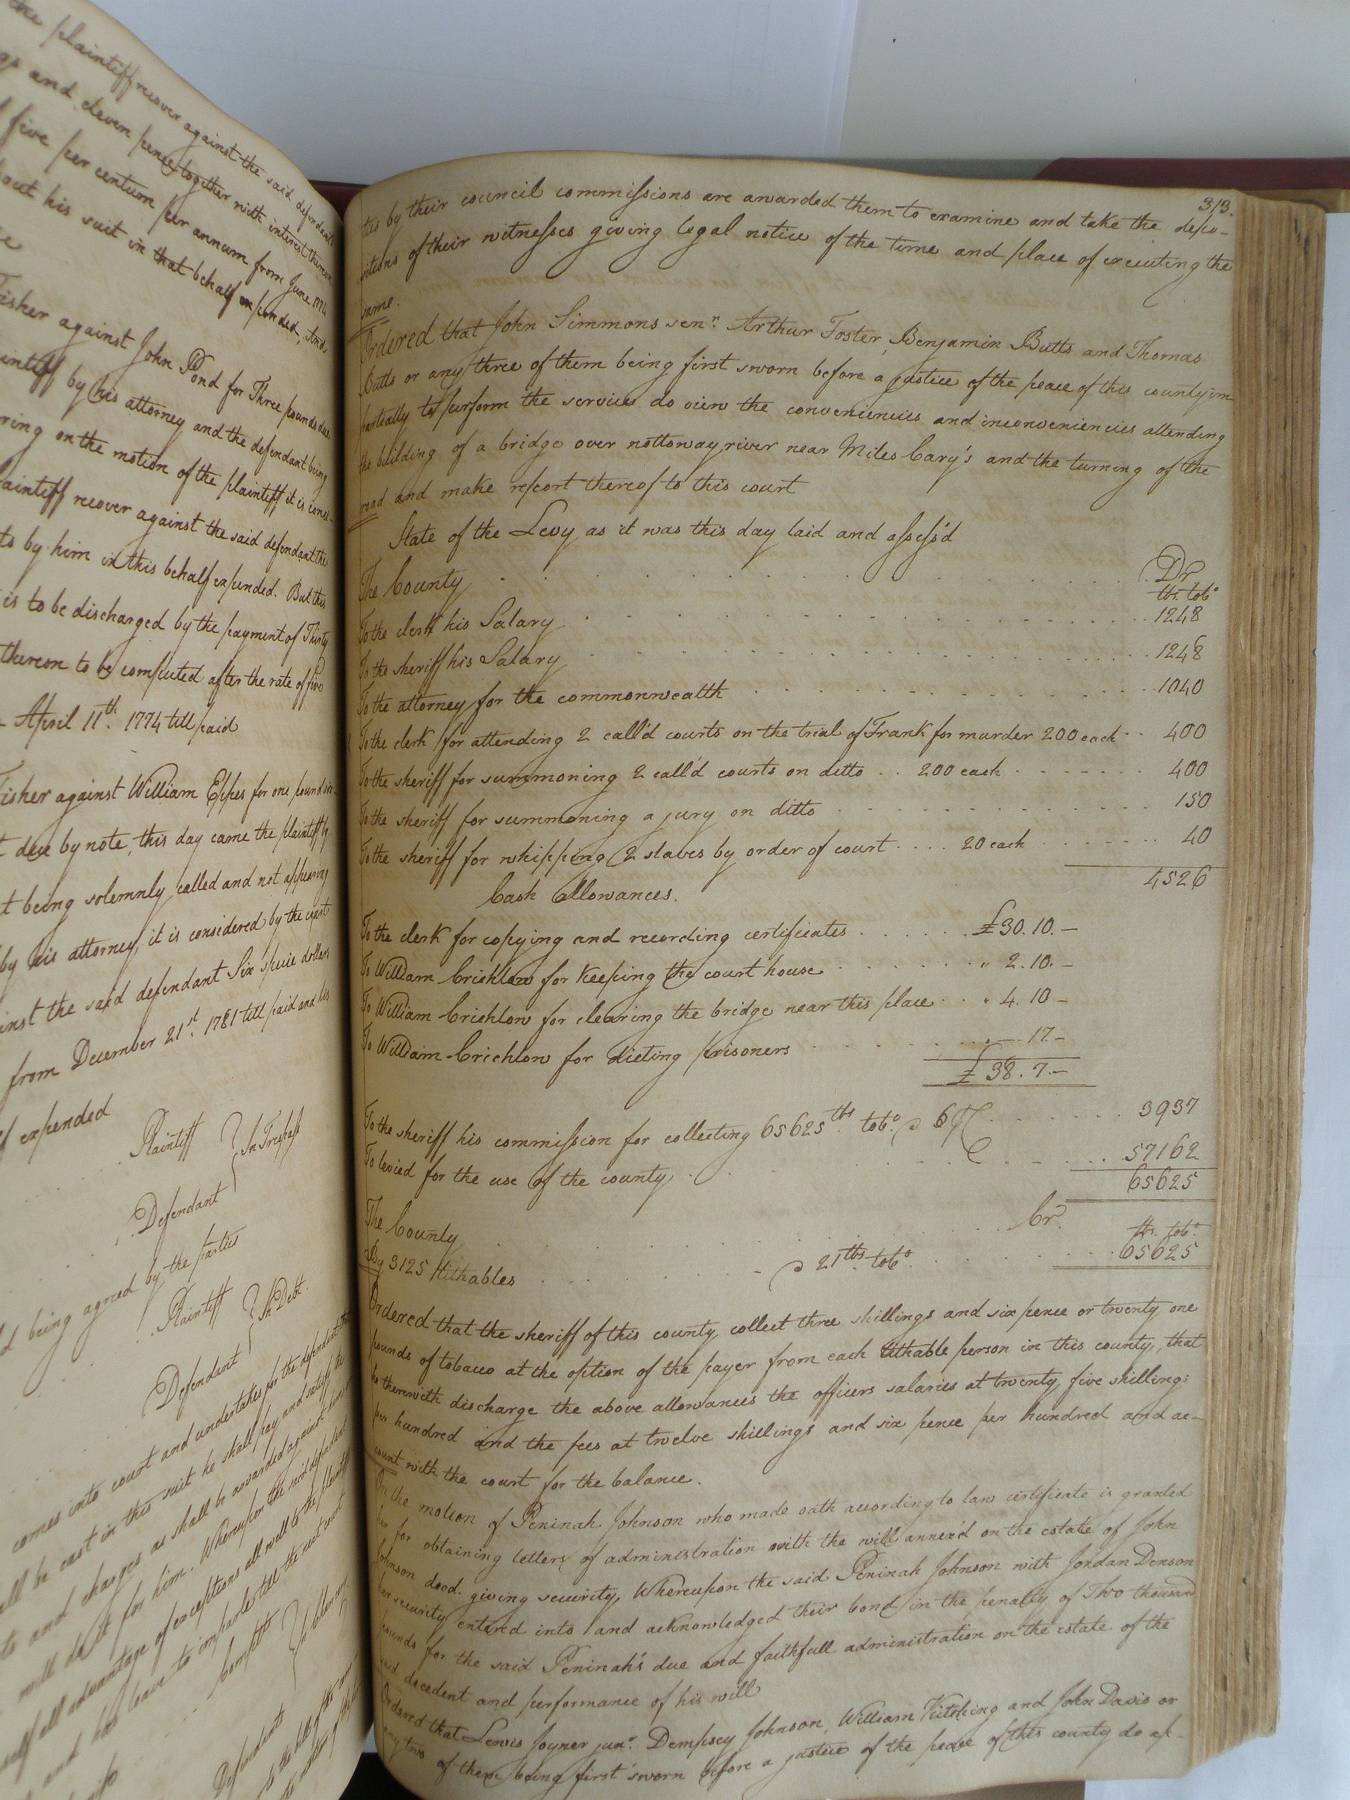 the plaintiff recover against the said defendant
and eleven pence together with interest thereon
five per centum per annum from June 1774
out his suit in that behalf expended. And
Fisher against John Pond for Three pounds
intiff by his attorney and the defendant being
ring on the motion of the plaintiff it is consi-
aintiff recover against the said defendant the
ts by him in this behalf expended. But this
is to be discharged by the payment of Thirty
thereon to be computed after the rate of five
April 11th. 1774 till paid
Fisher against William Eppes for one pound
due by note, this day came the plaintiff by
t being solemnly called and not appearing
by his attorney, it is considered by the court
inst the said defendant Six specie dollars
from December 21st. 1781 till paid and his
f expended
Plaintiff
In Trespass
Defendant
d being agreed by the parties
Plaintiff
In Debt.
Defendant
comes into court and undertakes for the defendant that
ll be cast in this suit he shall pay and satisfy the
ts and charges as shall be awarded against him
will do it for him. Whereupon the said defendant
self all advantage of exceptions as well to the plaintiffs
and has leave to imparle till the next court
Complts
Defendants
to the bill of the
313.
ties by their council commissions are awarded them to examine and take the depo-
sitions of their witnesses giving legal notice of the time and place of executing the
same.
Ordered that John Simmons senr. Arthur Foster, Benjamin Butts and Thomas
Butts or any three of them being first sworn before a justice of the peace of this county im
partially to perform the service do view the conveniencies and inconveniencies attending
the building of a bridge over nottoway river near Miles Cary's and the turning of the
road and make report thereof to this court
State of the Levy as it was this day laid and assess'd
The County Dr
lbs. tobo.
To the clerk his Salary 1248
To the sheriff his Salary 1248
To the attorney for the commonwealth 1040
To the clerk for attending 2 call'd courts on the trial of Frank for murder 200 each 400
To the sheriff for summoning 2 call'd courts on ditto 200 each 400
To the sheriff for summoning a jury on ditto 150
To the sheriff for whipping 2 slaves by order of court 20 each 40
4526
Cash Allowances.
To the clerk for copying and recording certificates £30.10.-
To William Crichlow for keeping the court house " 2.10.-
To William Crichlow for clearing the bridge near this place " 4.10-
To William Crichlow for dieting prisoners " 17-
£38.7.-
To the sheriff his commission for collecting 65625 lbs tobo. @ 6 PCt 3937
To levied for the use of the county 57162
65625
The County Cr.
lbs. tobo.
By 3125 tithables @ 21 lbs tobo. 65625
Ordered that the sheriff of this county collect three shillings and six pence or twenty one
pounds of tobacco at the option of the payer from each tithable person in this county, that
he therewith discharge the above allowances the officers salaries at twenty five shillings
per hundred and the fees at twelve shillings and six pence per hundred and ac-
count with the court for the balance.
On the motion of Peninah Johnson who made oath according to law certificate is granted
her for obtaining letters of administration with the will annex'd on the estate of John
Johnson decd. giving security, Whereupon the said Peninah Johnson with Jordan Denson
her security entered into and acknowledged their bond in the penalty of Two thousand
pounds for the said Peninah's due and faithfull administration on the estate of the
said decedent and performance of his will
Ordered that Lewis Joyner junr. Dempsey Johnson, William Kitching and John Davis or
any two of them being first sworn before a justice of the peace of this county do ap-